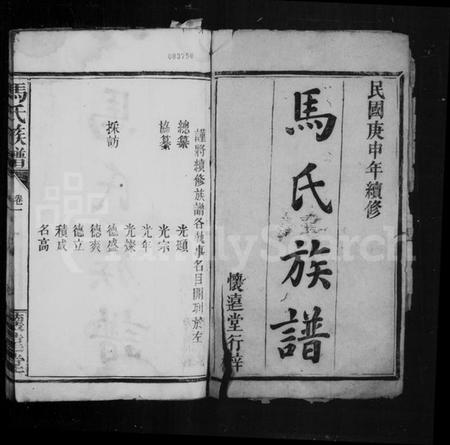 民國庚申年續修
馬氏族譜
懷遠堂行梓
083750
謹將續修族譜各執事名目開列於左
總纂 光題
協纂 光宗
光年
採訪 光燦
德盛
德爽
德立
積成
名高
馬氏族譜
卷一
FamilySearch